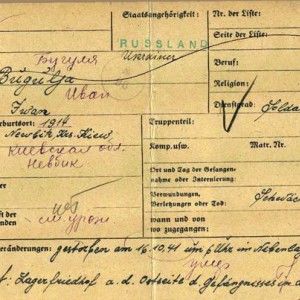 Staatsangehörigkeit:
Nr. der Liste:
RUSSLAND
Seite der Liste:
Бугуля
Ukrainer
Beruf:
Bugulja
Иван
Religion:
Iwan
Dienstgrad: Soldat
Geburtsort: 1914
Truppenteil:
Kr. Kiew
Komp. usw.
Matr. Nr.
Киевская обл.
Невбик
Ort und Tag der Gefangen-
nahme oder Internierung:
Verwundungen,
Verletzungen oder Tod:
wann und von
wo zugegangen:
ст. урож.
Veränderungen: gestorben am 16.10.41 um 6 Uhr im
умер
Lagerfriedhof a. d. Ostseite d. Gefängnisses in